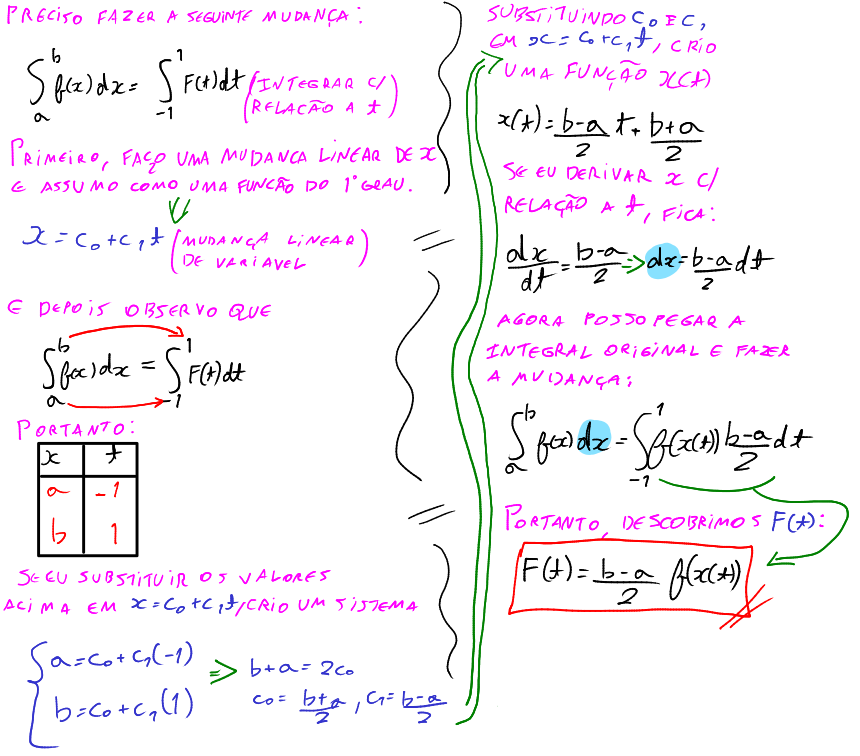 PRECISO FAZER A SEGUINTE MUDANÇA:
∫_a^b f(x)dx = ∫_{-1}^1 F(t)dt (INTEGRAR C/
RELAÇÃO A t)
PRIMEIRO, FAÇO UMA MUDANCA LINEAR DE X
E ASSUMO COMO UMA FUNCÃO DO 1º GRAU.
x = c₀ + c₁t (MUDANÇA LINEAR
DE VARIAVEL)
E DEPOIS OBSERVO QUE
∫_a^b f(x)dx = ∫_{-1}^1 F(t)dt
PORTANTO:
x t
a -1
b 1
SE EU SUBSTITUIR OS VALORES
ACIMA EM x = c₀ + c₁t, CRIO UM SISTEMA
{ a = c₀ + c₁(-1) ⇒ b + a = 2c₀
b = c₀ + c₁(1) c₀ = (b+a)/2, c₁ = (b-a)/2
SUBSTITUINDO C₀ E C₁
EM x = c₀ + c₁t, CRIO
UMA FUNÇÃO x(t)
x(t) = (b-a)/2 t + (b+a)/2
SE EU DERIVAR x C/
RELAÇÃO A t, FICA:
dx/dt = (b-a)/2 ⇒ dx = (b-a)/2 dt
AGORA POSSO PEGAR A
INTEGRAL ORIGINAL E FAZER
A MUDANÇA:
∫_a^b f(x)dx = ∫_{-1}^1 f(x(t)) (b-a)/2 dt
PORTANTO, DESCOBRIMOS F(t):
F(t) = (b-a)/2 f(x(t))